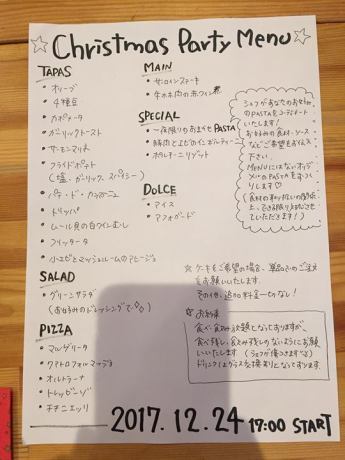 ☆ Christmas Party Menu ☆
TAPAS
• オリーブ
• 4種豆
• カポナータ
• ガーリックトースト
• サーモンマリネ
• フライドポテト
(塩、ガーリック、スパイシー)
• パテ・ド・カンパーニュ
• トリッパ
• ムール貝の白ワインむし
• フリッタータ
• 小エビとマッシュルームのアヒージョ
SALAD
• グリーンサラダ
(お好みのドレッシングで)
PIZZA
• マルゲリータ
• クアトロフォルマッジョ
• オルトラーナ
• トレッビーゾ
• チチニエッリ
MAIN
• サーロインステーキ
• 牛ホホ肉の赤ワイン煮
SPECIAL
• 一夜限りのおまかせPASTA
• ポルチーニリゾット
DOLCE
• アイス
• アフォガード
シェフがあなたのお好み
のPASTAをコーディネート
いたします!
お好みの食材・ソース
などご希望をお伝え
下さい。
MENUにはないオリジ
ナルのPASTAをおつくり
します♡
(食材の
上、できる限り対応させて
いただきます!)
☆ ケーキをご希望の場合、単品でのご注文
をお願いいたします。
その他、追加料金一切なし!
☆ お約束
食べ・飲み放題となっておりますが、
食べ残し・飲み残しのないようにお願
いいたします
ドリンクはグラス交換制となっております。
2017.12.24 17:00 START